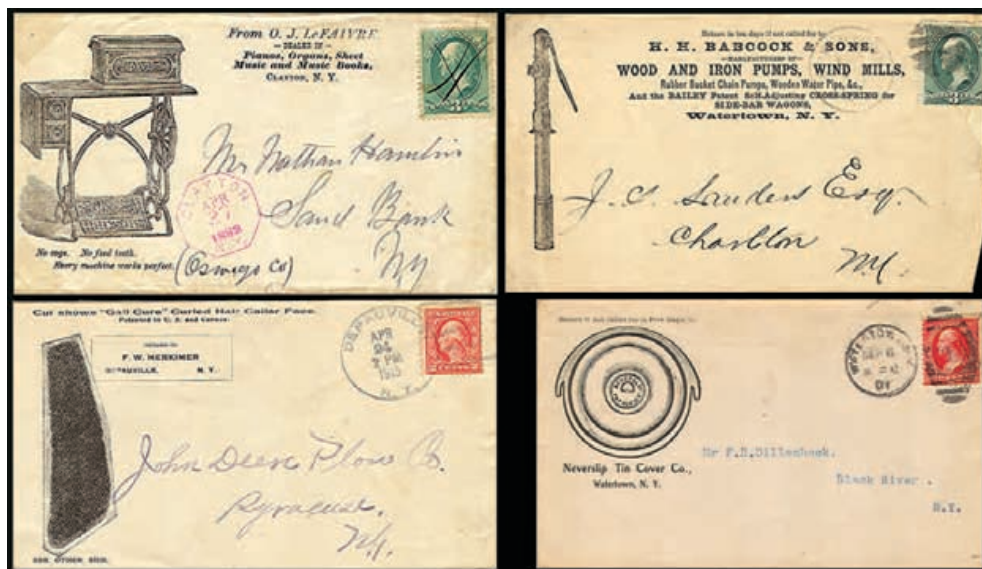 From O. J. LeFAIVRE
— DEALER IN —
Pianos, Organs, Sheet
Music and Music Books,
CLAYTON, N. Y.
3
Mr Nathan Hamlin
Sand Bank
NY
(Oswego Co)
CLAYTON
APR
27
N.Y.
No cogs. No feed teeth.
Every machine works perfect.
Return in ten days if not called for to
H. H. BABCOCK & SONS,
—MANUFACTURERS OF—
WOOD AND IRON PUMPS, WIND MILLS,
Rubber Bucket Chain Pumps, Wooden Water Pipe, &c.,
And the BAILEY Patent Self-Adjusting CROSS-SPRING for
SIDE-BAR WAGONS,
Watertown, N. Y.
3
J. C. Sanders Esq.
Charlton
NY.
Cut shows "Gall Cure" Curled Hair Collar Face.
Patented in U. S. and Canada.
F. W. HERKIMER
DEPAUVILLE, N. Y.
DEPAUVILLE
APR
24
PM
N.Y.
2 CENTS 2
John Deere Plow Co.
Syracuse,
NY.
SEE OTHER SIDE.
Neverslip Tin Cover Co.,
Watertown, N. Y.
WATERTOWN, N.Y.
SEP 6
01
Mr F.B.Dillenback.
Black River .
N.Y.